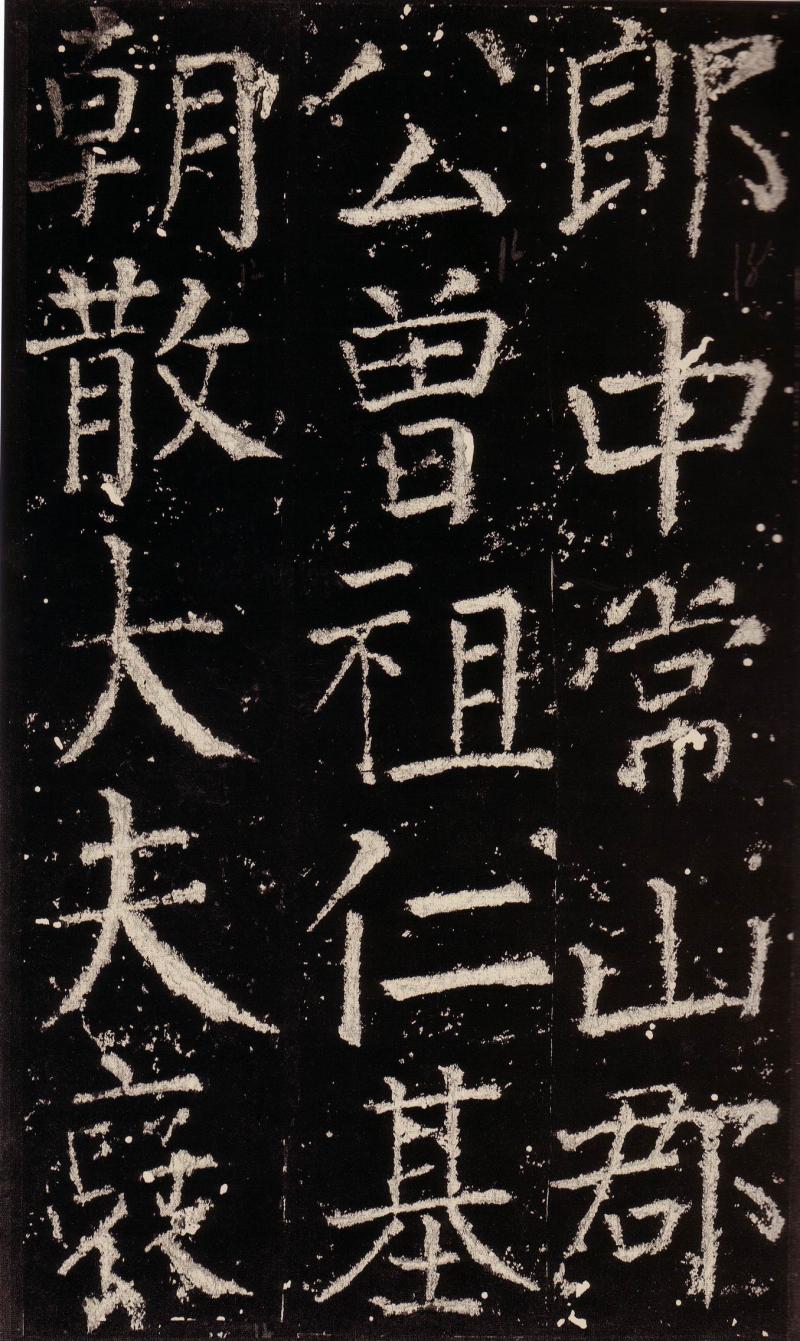 郎中常山郡
公曾祖仁基
朝散大夫褒